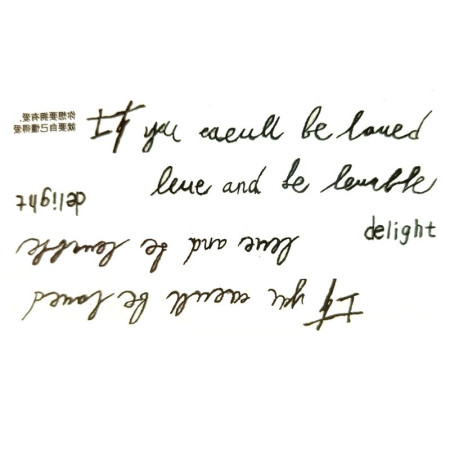 你想要擁有愛，
就要自己懂得愛
If you would be loved
love and be lovable
delight
delight
love and be lovable
If you would be loved